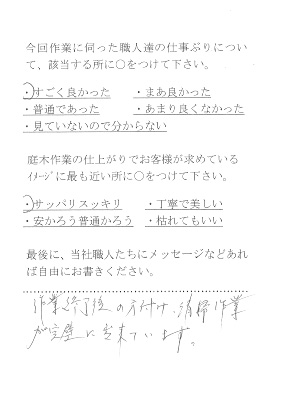 今回作業に伺った職人達の仕事ぶりについ
て、該当する所に○をつけて下さい。
・すごく良かった ・まあ良かった
・普通であった ・あまり良くなかった
・見ていないので分からない
庭木作業の仕上がりでお客様が求めている
ｲﾒｰｼﾞに最も近い所に○をつけて下さい。
・サッパリスッキリ ・丁寧で美しい
・安かろう普通かろう ・枯れてもいい
最後に、当社職人たちにメッセージなどあれ
ば自由にお書きください。
作業終了後の片付け、清掃作業
が完璧に出来ています。